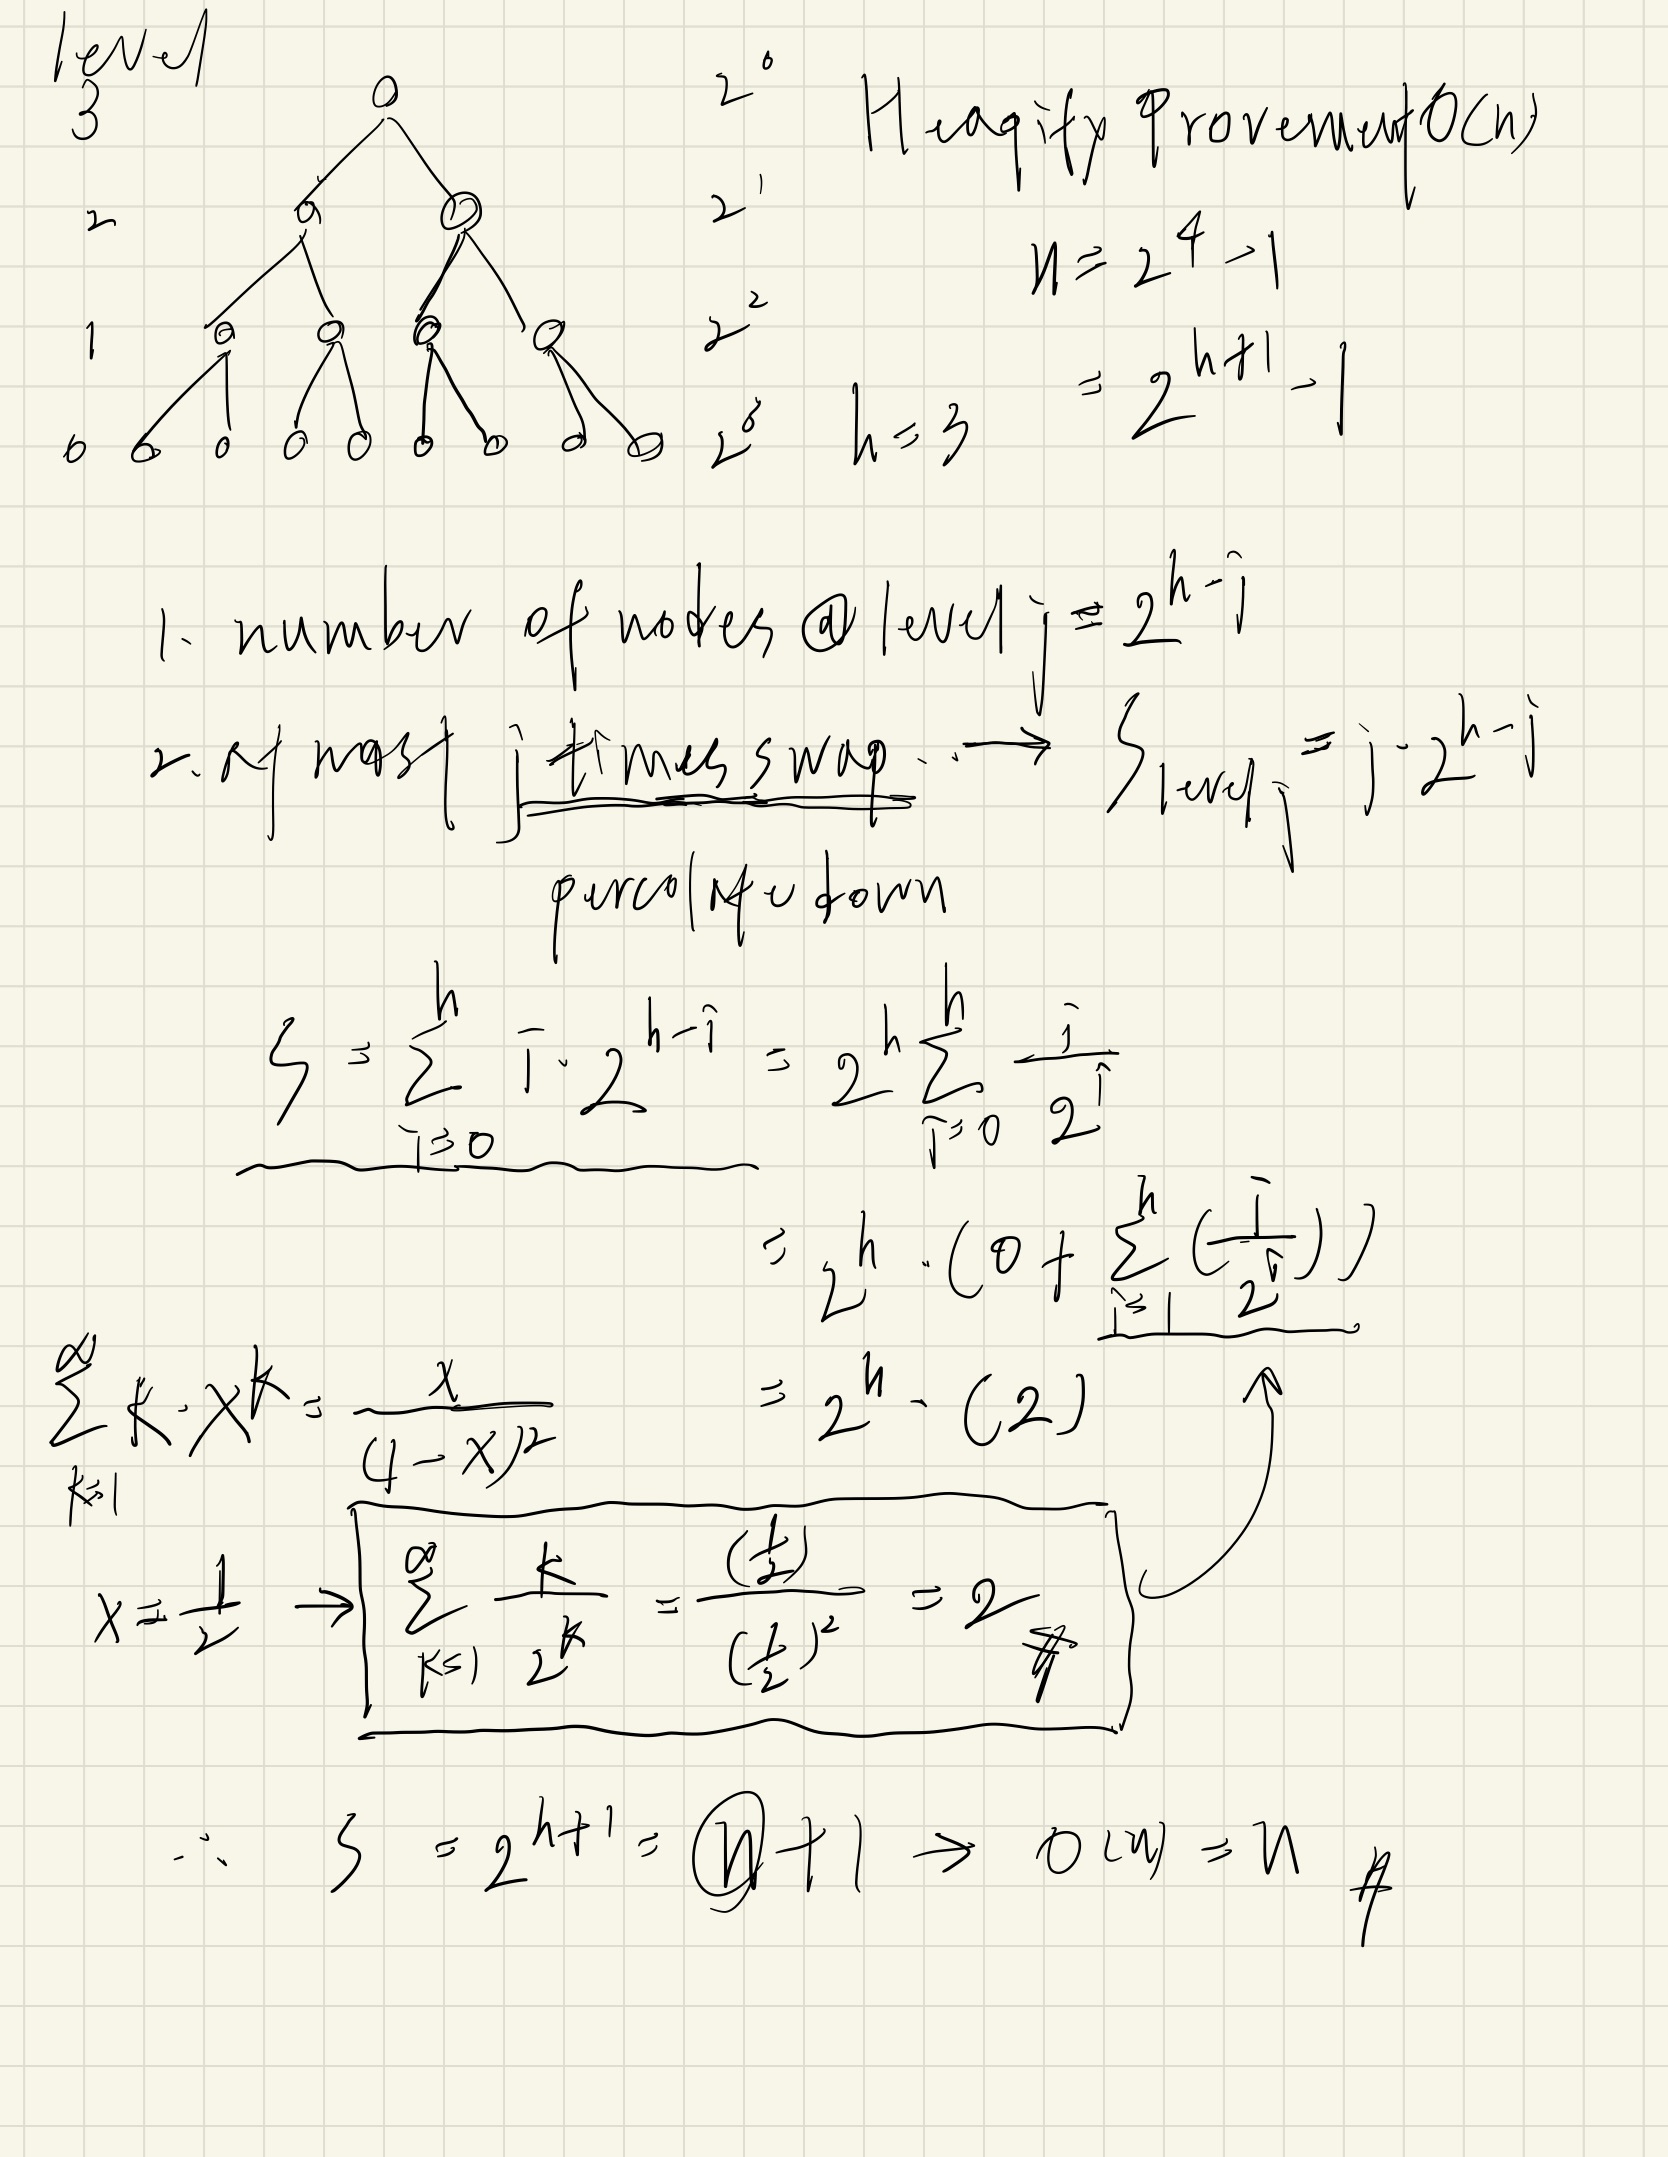 level
3 2⁰ Heapify Provement O(n)
2 2¹ n = 2⁴ - 1
1 2² = 2^(h+1) - 1
0 2³ h = 3
1. number of nodes @ level j = 2^(h-j)
2. At most j times swap.. → S level j = j · 2^(h-j)
percolate down
S = ∑_(j=0)^h j · 2^(h-j) = 2^h ∑_(j=0)^h j/2^j
= 2^h · (0 + ∑_(j=1)^h (j/2^j))
∑_(k=1)^∞ k · x^k = x/(1-x)² = 2^h · (2)
x = 1/2 → ∑_(k=1)^∞ k/2^k = (1/2)/(1/2)² = 2 #
∴ S = 2^(h+1) = n + 1 → O(n) = n #